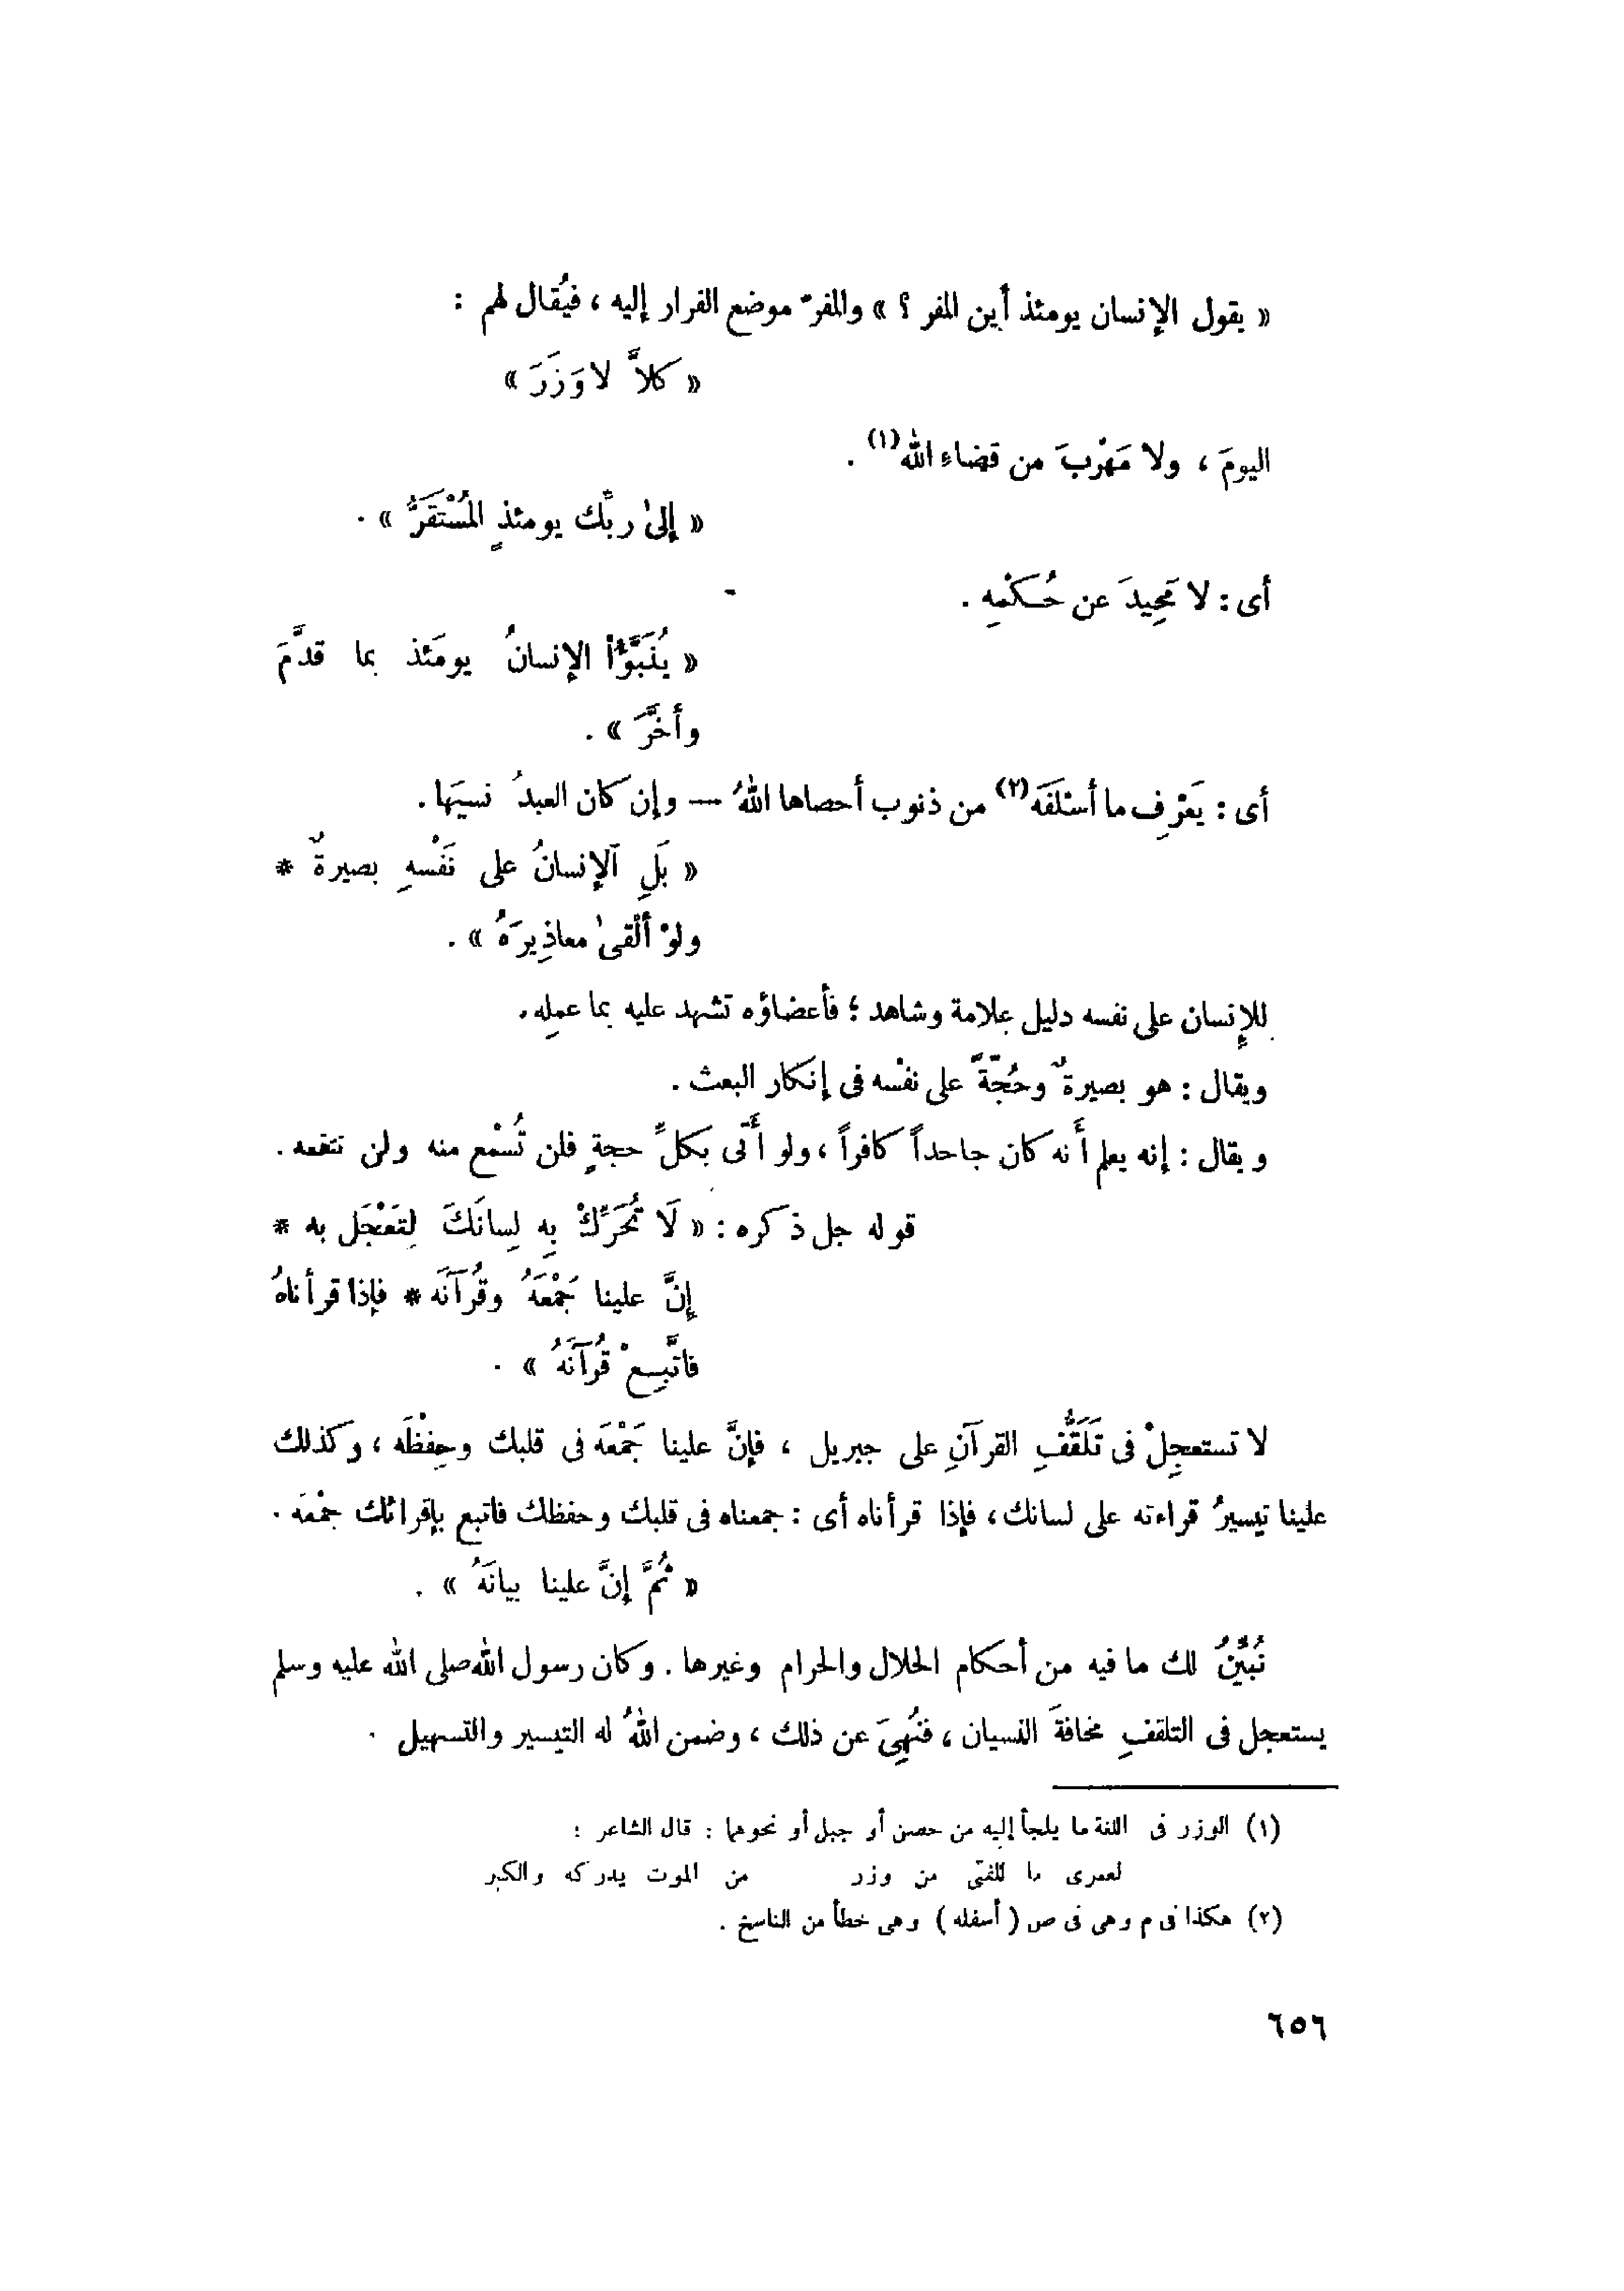 « يقول الإنسان يومئذ أين المفر ؟ » والمفرّ موضع الفرار إليه ، فيُقال لهم :
« كلاَّ لا وَزَرَ »
اليومَ ، ولا مَهْربَ من قضاءِ الله(١) .
« إلىٰ ربِّك يومئذٍ المُسْتَقَرُّ » .
أى : لا مَحِيدَ عن حُكْمِه .
« يُنَبَّؤُا الإنسانُ يومَئذ بما قدَّمَ
وأخَّرَ » .
أى : يَعْرِف ما أسْلَفَه(٢) من ذنوب أحصاها اللهُ — وإن كان العبدُ نسيَها .
« بَلِ ٱلإنسانُ على نَفْسهِ بصيرةٌ *
ولوْ ألْقىٰ معاذِيرَهُ » .
للإنسان على نفسه دليل علامة وشاهد ؛ فأعضاؤه تشهد عليه بما عمِله .
ويقال : هو بصيرةٌ وحُجّةٌ على نفْسه فى إنكار البعث .
ويقال : إنه يعلم أَنه كان جاحداً كافراً ، ولو أَتى بكلِّ حجةٍ فلن تُسْمع منه ولن تنفعه .
قوله جل ذكره : « لَا تُحَرِّكْ بِه لِسانَكَ لِتَعْجَل به *
إنَّ علينا جَمْعَهُ وقُرآنَه * فإذا قرأناهُ
فاتَّبِعْ قُرآنَهُ » .
لا تستعجِلْ فى تَلَقُّفِ القرآنِ على جبريل ، فإنَّ علينا جَمْعَه فى قلبك وحِفْظَه ، وكذلك
علينا تيسيرُ قراءته على لسانك ، فإذا قرأناه أى : جمعناه فى قلبك وحفظك فاتبع بإقرائك جمْعَه .
« ثُمَّ إنَّ علينا بيانَهُ » .
نُبَيِّنُ لك ما فيه من أحكام الحلال والحرام وغيرها . وكان رسول الله صلى الله عليه وسلم
يستعجل فى التلقفِ مخافةَ النسيان ، فنُهِىَ عن ذلك ، وضمن اللهُ له التيسير والتسهيل .
(١) الوزر فى اللغة ما يلجأ إليه من حصن أو جبل أو نحوهما : قال الشاعر :
لعمرى ما للفتى من وزر من الموت يدركه والكبر
(٢) هكذا فى م وهى فى ص ( أسفله ) وهى خطأ من الناسخ .
٦٥٦